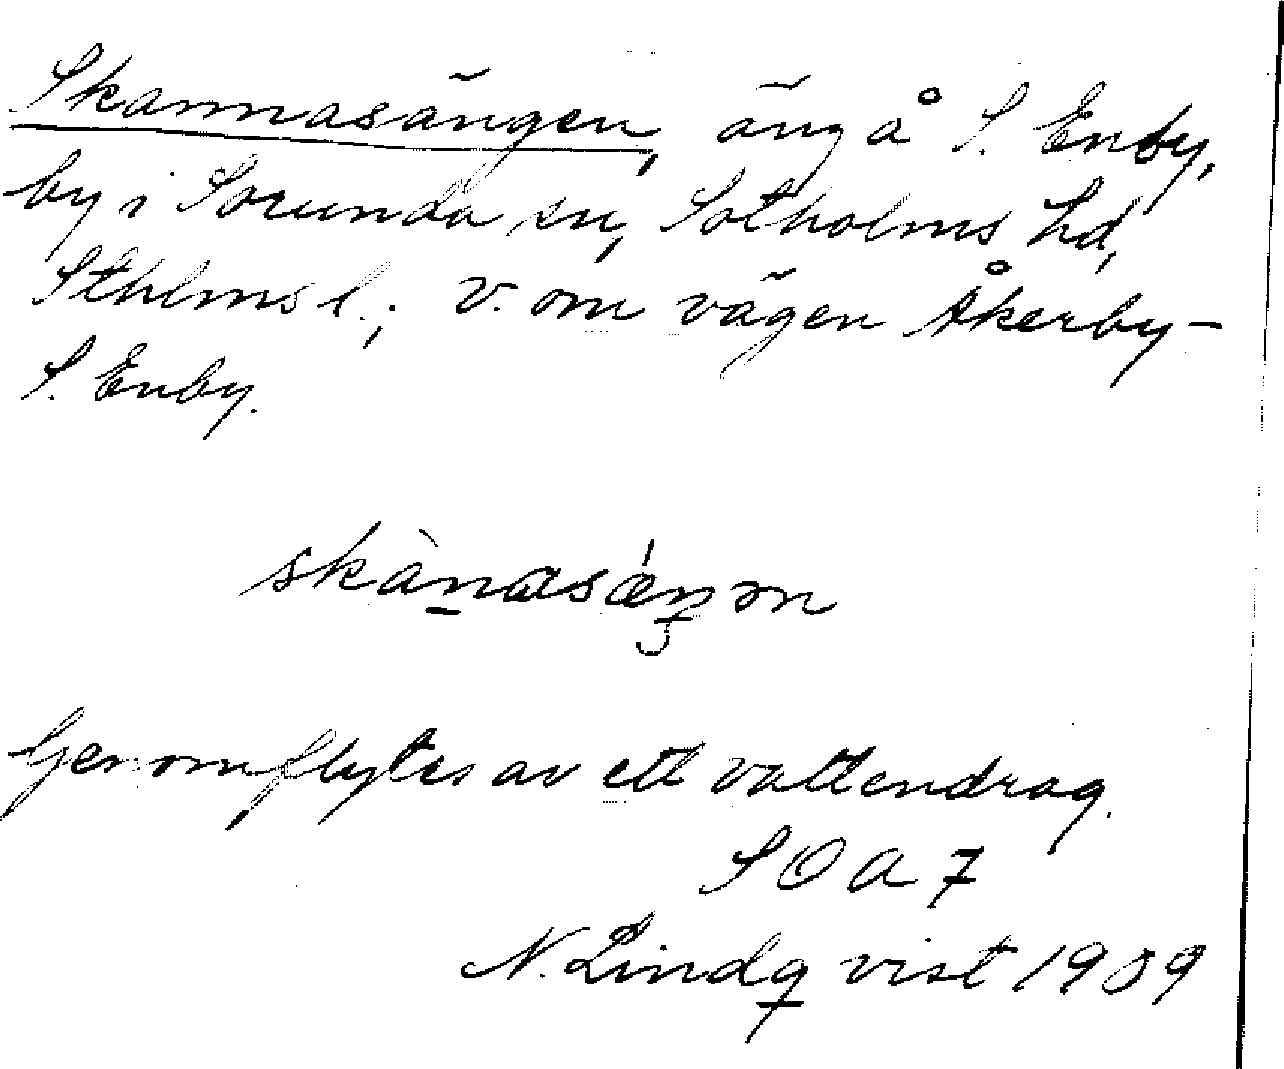 Skannasängen, äng å S. Enby,
by i Sorunda sn, Sotholms hd,
Sthlms l.; v. om vägen Åkerby-
S. Enby.
skànasǽŋən
Genomflytes av ett vattendrag.
SOA 7
N. Lindqvist 1909